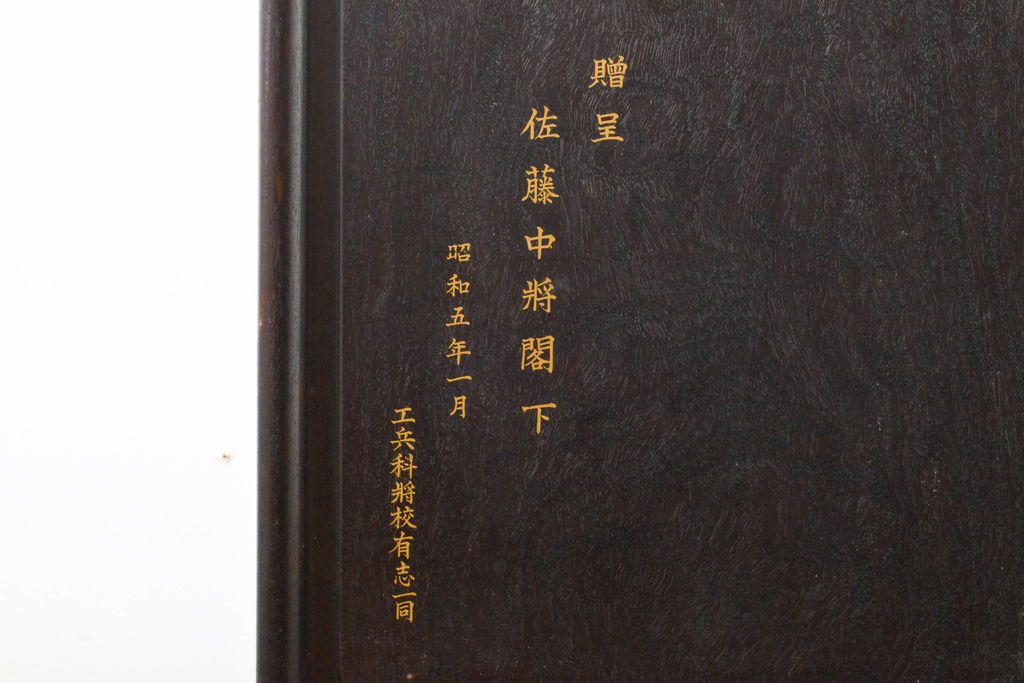 贈呈
佐藤中將閣下
昭和五年一月
工兵科將校有志一同